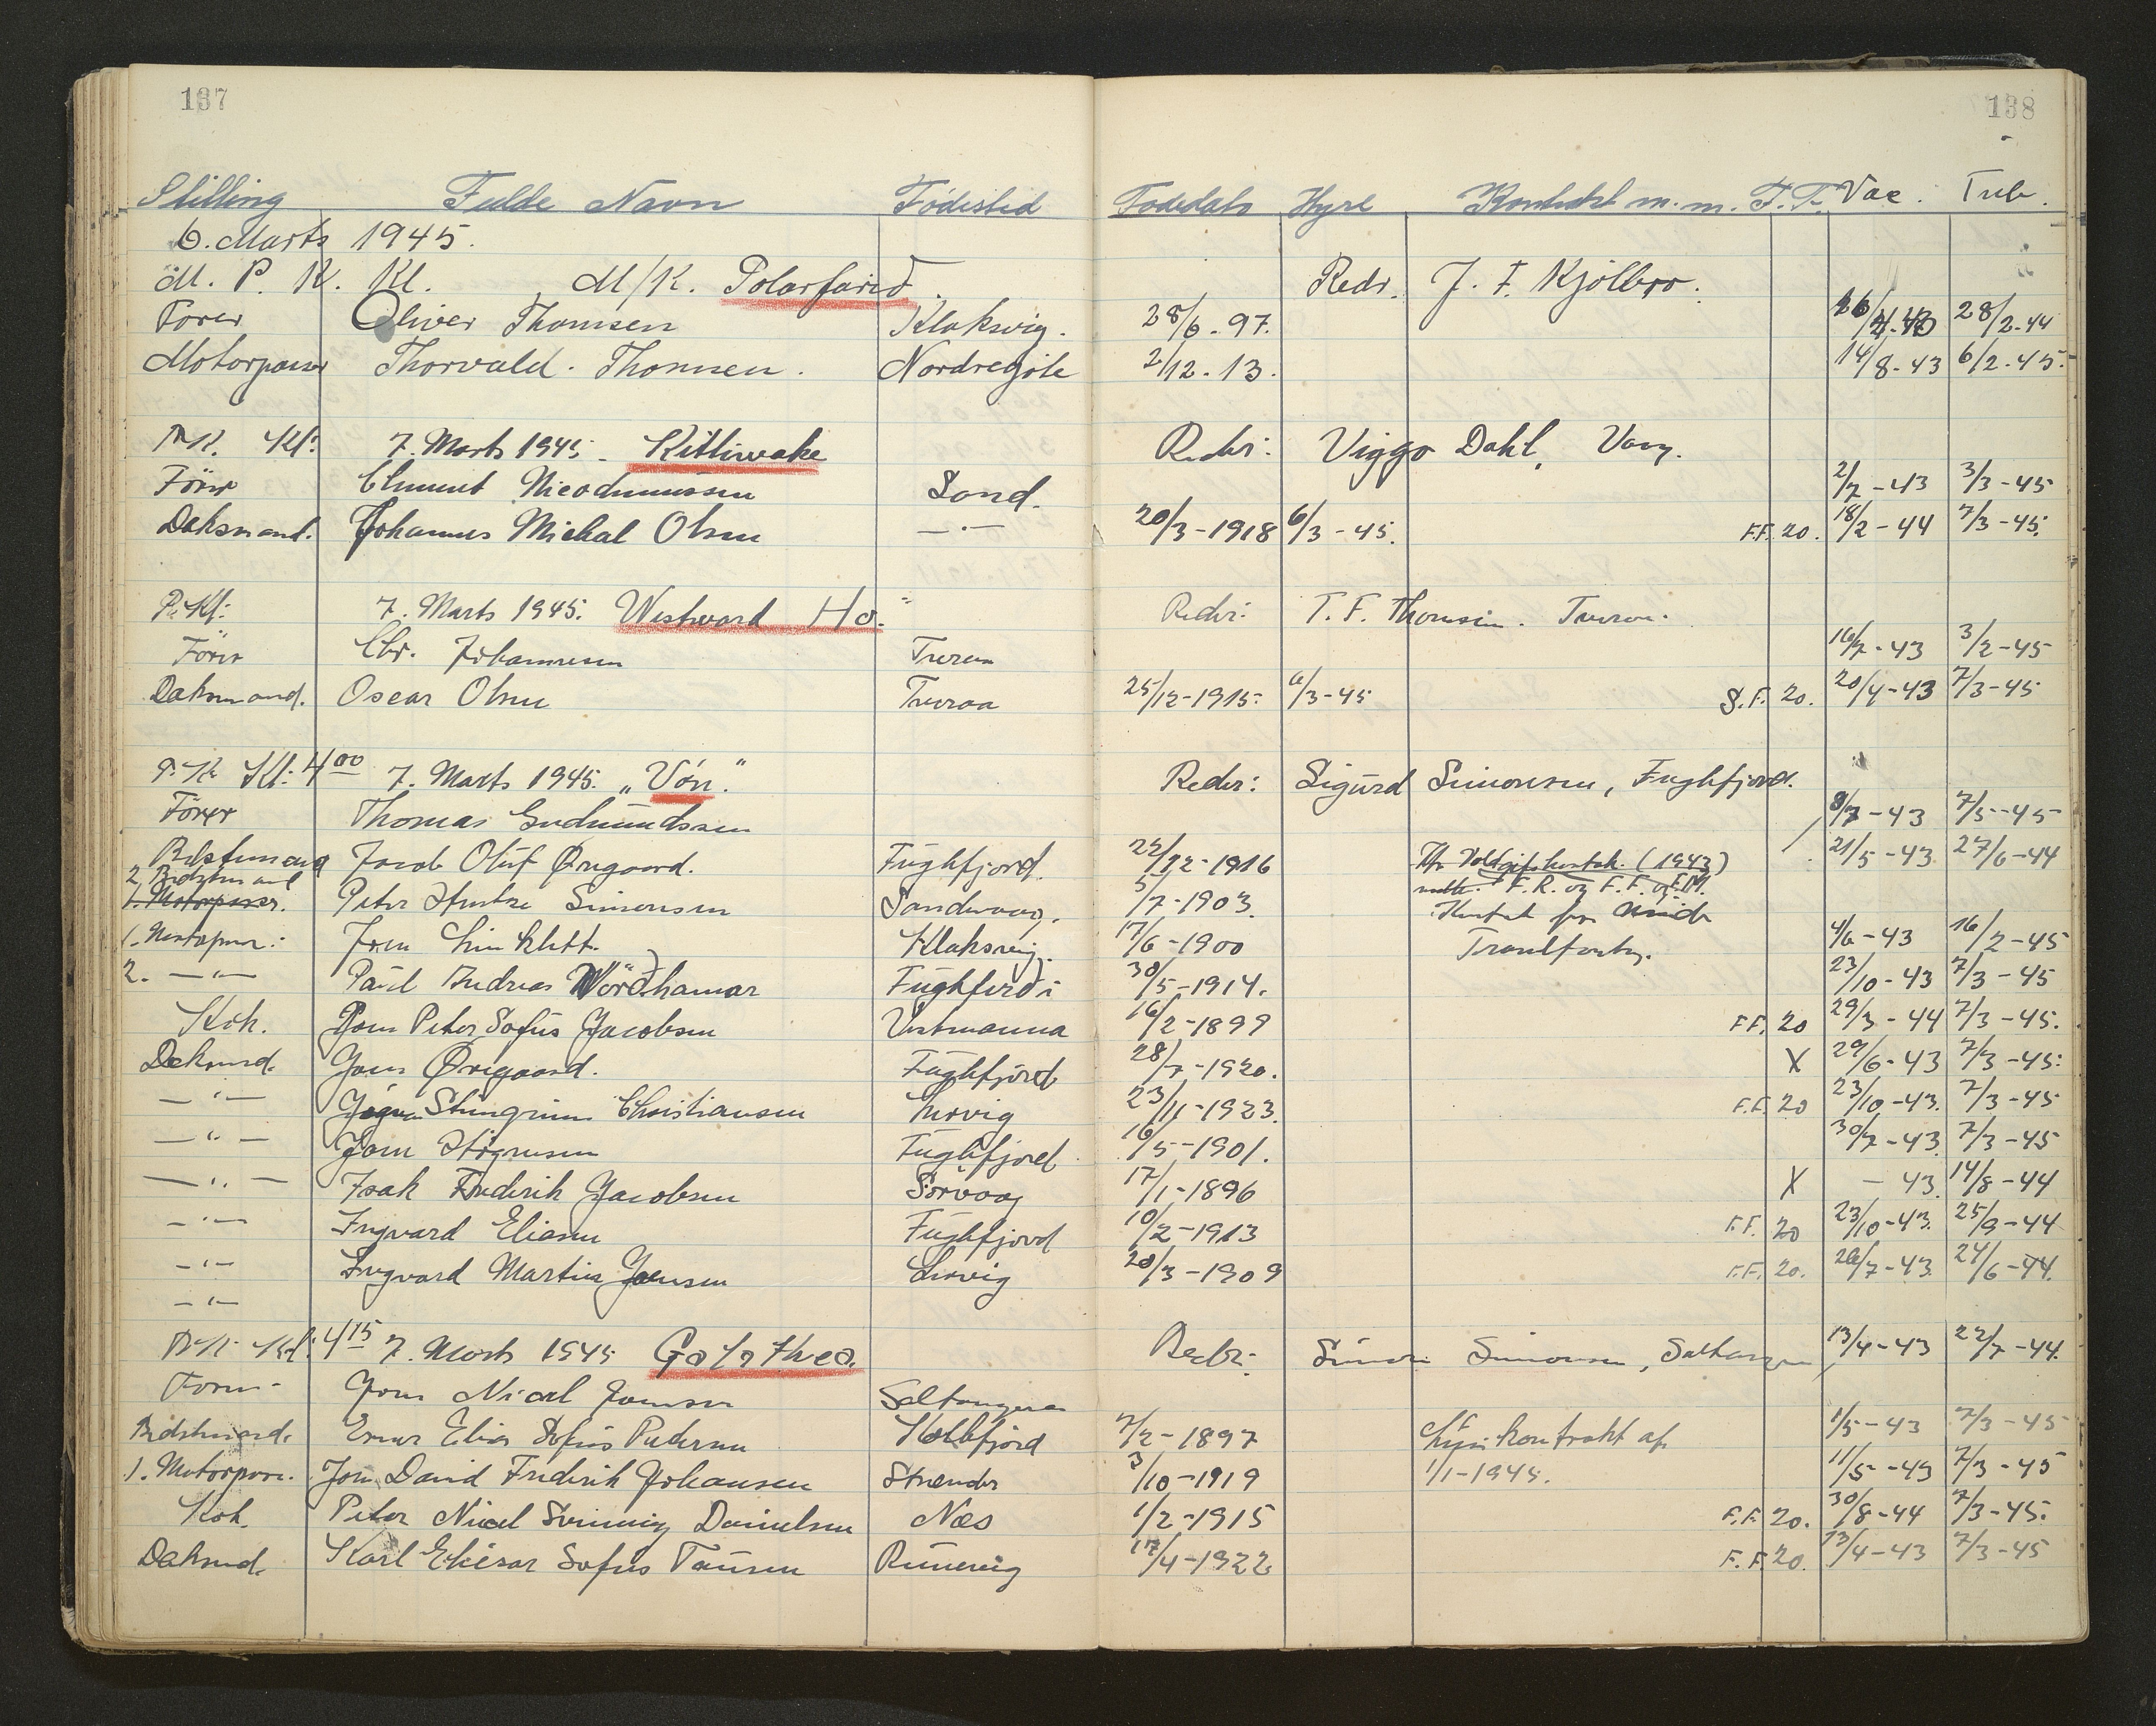 137
138
Stilling Fulde Navn Fødested Fødedato Hyre Kontrakt m.m. F.F. Vac. Tub.
6. Marts 1945.
M. P. K. Kl. M/K. Polarfarið. Redr. J. F. Kjølbro.
Förer Oliver Thomsen Klaksvig. 28/6-97. 28/2-44
Motorpasser Thorvald Thomsen. Nordregöte 2/12-13. 14/8-43 6/2-45.
P.K. Kl: 7. Marts 1945 - Kittiwake Reder: Viggo Dahl, Vaag.
Förer Clement Nicodemussen Sand. 2/7-43 3/3-45
Daksmand. Johannes Michal Olsen —"— 20/3-1918 6/3-45. F.F. 20. 18/2-44 7/3-45.
P.Kl: 7. Marts 1945. Westward Ho. Reder: T. F. Thomsen. Tveraa.
Förer Chr. Johannesen Tveraa 16/7-43 3/2-45
Daksmand. Oscar Olsen Tveraa 25/12-1915. 6/3-45 S.F. 20. 20/4-43 7/3-45
P.K. Kl: 4 00 7. Marts 1945. "Vón." Reder: Sigurd Simonsen, Fuglefjord.
Förer Thomas Gudmundssen 7/5-45
Bedstemand Jacob Oluf Ørgaard. Fuglefjord. /12-1916 (1943) 21/5-43 27/6-44
2, Bedstmand
1. Motorpasser. Peter Simonsen Sandvaag. 5/7-1903. F.R. og F.F. og F.M.
1. Motorpasser: Joen Klaksvig. 17/6-1900 4/6-43 16/2-45
2. —"— Paul Andreas Nörðhamar Fuglefirði 30/5-1914. 23/10-43 7/3-45
Kok. Joen Peter Sofus Jacobsen Vestmanna 16/2-1899 F.F. 20 29/3-44 7/3-45.
Daksmd. Joen Ørgaard. Fuglefjord 28/7-1920. X 29/6-43 7/3-45.
—"— Jógvan Steingrim Christiansen Lervig 23/11-1923. F.F. 20 23/10-43. 7/3-45
—"— Joen Högnesen Fuglefjord 16/5-1901. 30/7-43. 7/3-45
—"— Isak Frederik Jacobsen Sörvaag 17/1-1896 X - 43. 14/8-44
—"— Ingvard Eliasen Fuglefjord 10/2-1913 F.F. 20 23/10-43. 25/9-44
—"— Ingvard Martin Joensen Lervig 20/3-1909 F.F. 20. /7-43. 24/6-44.
—"—
P.K. Kl: 4 15 7. Marts 1945 Galathea. Reder: Simon Simonsen, Saltangaraa 13/4-43 22/7-44.
Förer Joen Nicol Joensen Saltangeraa
Bedstmand. Elias Sofus Pedersen Kollefjord 7/2-1897 kontrakt af 1/5-43 7/3-45
1. Motorpass. Joen David Frederik Johansen Strænder 3/10-1919 1/1-1945. 11/5-43 7/3-45
Kok. Peter Nicol Danielsen Næs 1/2-1915 F.F. 20. 30/8-44 7/3-45.
Daksmd. Karl Eliesar Sofus Tausen Runevig 17/4-1922 F.F. 20. 13/4-43 7/3-45